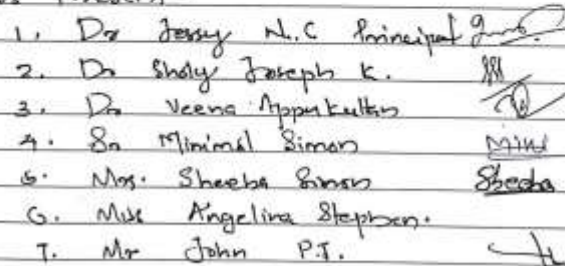 1. Dr Jessy N.C Principal
2. Dr Sholy Joseph K.
3. Dr Veena Appukuttan
4. Sr Minimol Simon Mini
5. Mrs. Sheeba Simon Sheeba
6. Miss Angelina Stephen.
7. Mr John P.T.